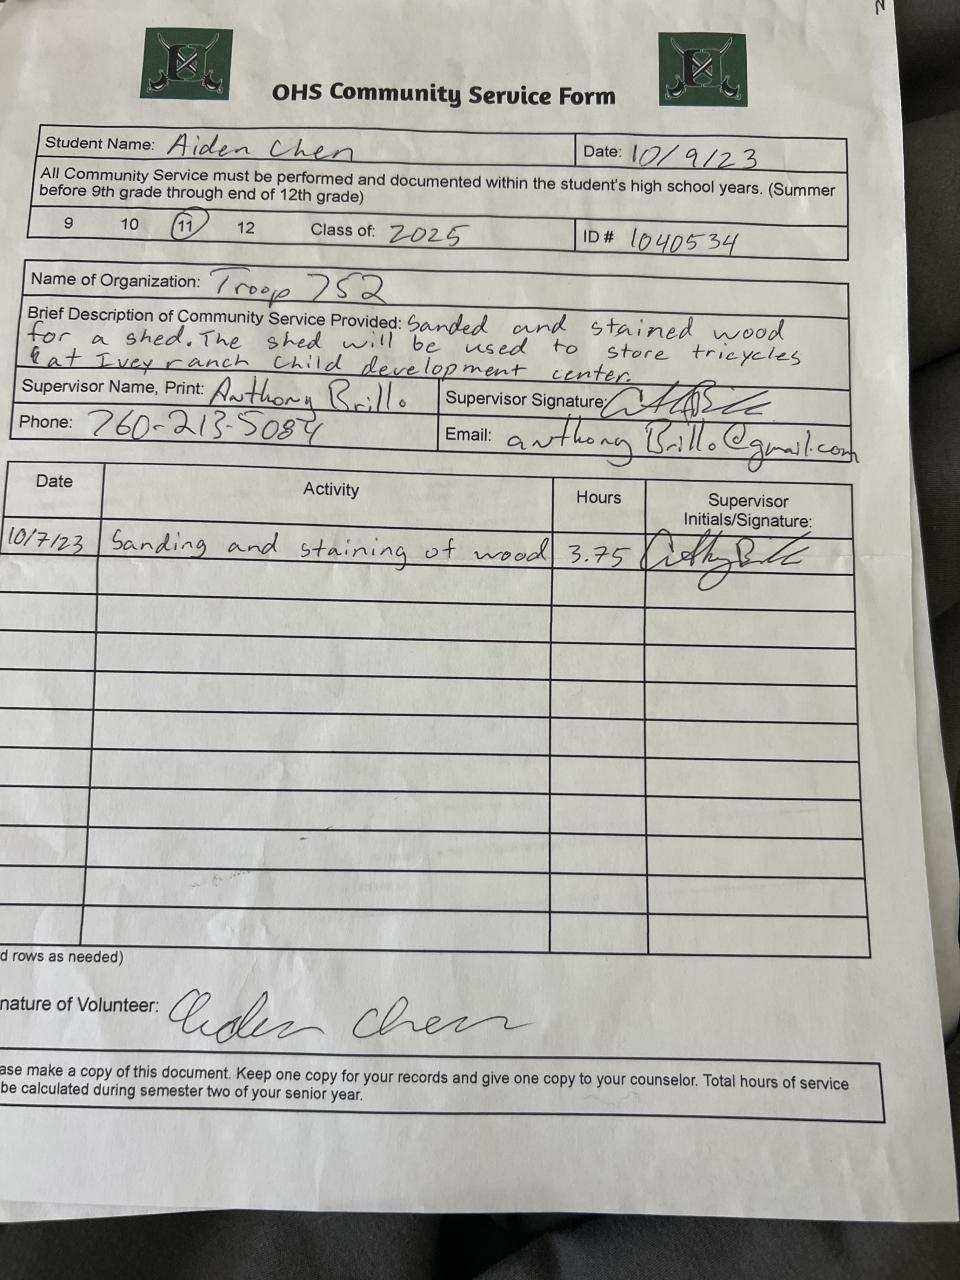 OHS Community Service Form
Student Name: Aiden Chen Date: 10/9/23
All Community Service must be performed and documented within the student's high school years. (Summer
before 9th grade through end of 12th grade)
9 10 11 12 Class of: 2025 ID # 1040534
Name of Organization: Troop 752
Brief Description of Community Service Provided: Sanded and stained wood
for a shed. The shed will be used to store tricycles
at Ivey ranch Child development center.
Supervisor Name, Print: Anthony Brillo Supervisor Signature:
Phone: 760-213-5084 Email: anthonyBrillo@gmail.com
Date Activity Hours Supervisor
Initials/Signature:
10/7/23 Sanding and staining of wood 3.75
d rows as needed)
nature of Volunteer: Aiden Chen
ase make a copy of this document. Keep one copy for your records and give one copy to your counselor. Total hours of service
be calculated during semester two of your senior year.